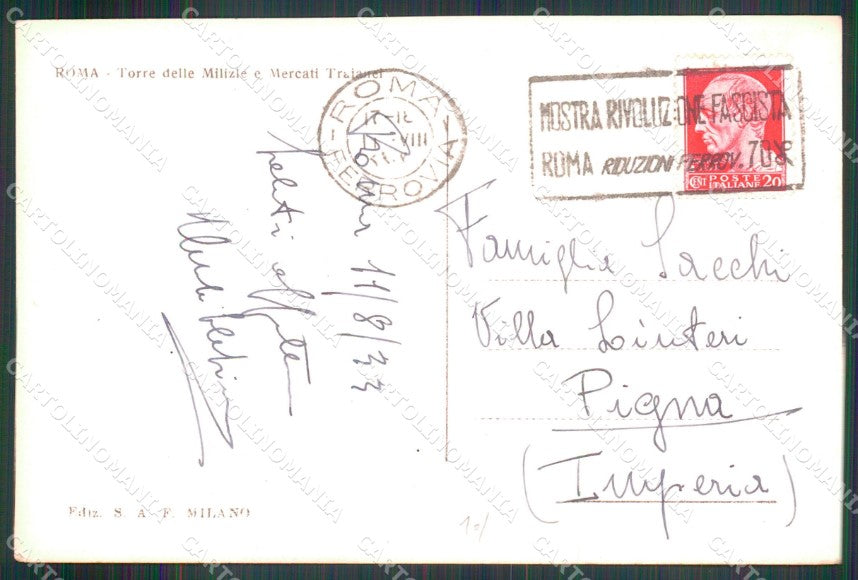 ROMA - Torre delle Milizie e Mercati Traianei
ROMA
FERROVIA
MOSTRA RIVOLUZIONE FASCISTA
ROMA RIDUZIONI FERROV. 70%
CENT POSTE ITALIANE 20
Roma 11/8/33
Saluti
Famiglia Sacchi
Villa Linteri
Pigna
(Imperia)
Ediz. S. A. F. MILANO
CARTOLINOMANIA